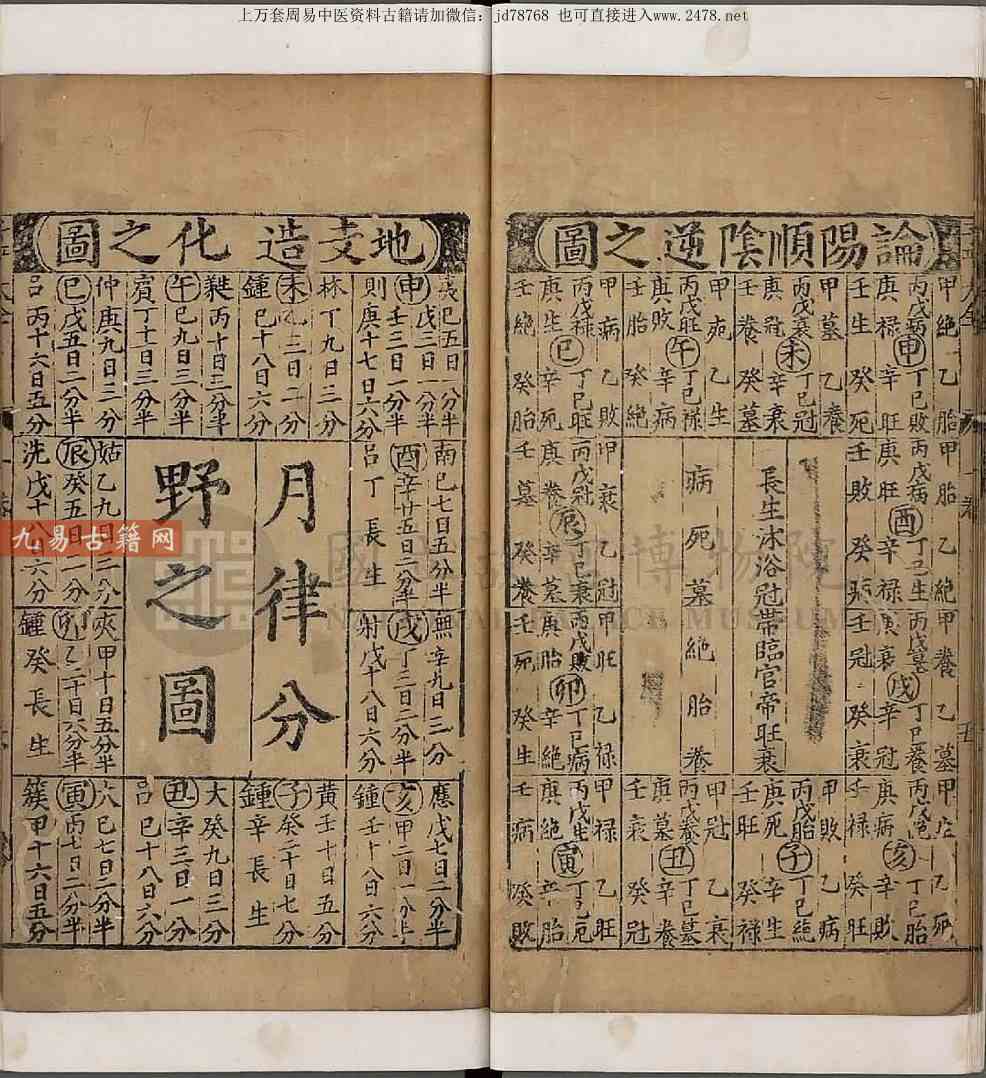 上万套周易中医资料古籍请加微信：jd78768 也可直接进入www.2478.net
論陽順陰逆之圖
甲絕 乙胎
丙戊病 申 丁己敗
庚祿 辛旺
壬生 癸死
甲墓 乙養
丙戊衰 未 丁己冠
庚冠 辛衰
壬養 癸墓
甲死 乙生
丙戊旺 午 丁己祿
庚敗 辛病
壬胎 癸絕
甲病 乙敗
丙戊祿 巳 丁己旺
庚生 辛死
壬絕 癸胎
甲胎 乙絕
丙戊病 酉 丁己生
庚旺 辛祿
壬敗 癸病
長生沐浴冠帶臨官帝旺衰
病死墓絕胎養
甲衰 乙冠
丙戊冠 辰 丁己衰
庚養 辛墓
壬墓 癸養
甲養 乙墓
丙戊墓 戌 丁己養
庚衰 辛冠
壬冠 癸衰
甲旺 乙祿
丙戊敗 卯 丁己病
庚胎 辛絕
壬死 癸生
乙死
丙戊絕 亥 丁己胎
庚病 辛敗
壬祿 癸旺
甲敗 乙病
丙戊胎 子 丁己絕
庚死 辛生
壬旺 癸祿
甲冠 乙衰
丙戊養 丑 丁己墓
庚墓 辛養
壬衰 癸冠
甲祿 乙旺
丙戊生 寅 丁己死
庚絕 辛胎
壬病 癸敗
地支造化之圖
夷己五日一分半
申戊二日一分半
壬三日一分半
則庚十七日六分
林丁九日三分
未乙三日二分
鍾己十八日六分
蕤丙十日三分半
午己九日三分
賓丁十日三分半
仲庚九日三分
巳戊五日一分半
呂丙十六日五分
南
己七日五分半
酉辛廿五日二分半
呂丁長生
月律分
野之圖
姑乙九日三分
辰癸五日一分
洗戊十八日六分
無辛九日三分
戌丁三日二分半
射戊十八日六分
夾甲十日五分半
卯乙二十日六分半
鍾癸長生
應戊七日二分半
亥甲二日一分半
鍾壬十八日六分
黃壬十日五分
子癸二十日七分
鍾辛長生
大癸九日三分
丑辛三日一分
呂己十八日六分
己七日二分半
寅丙七日二分半
簇甲十六日五分
九易古籍网